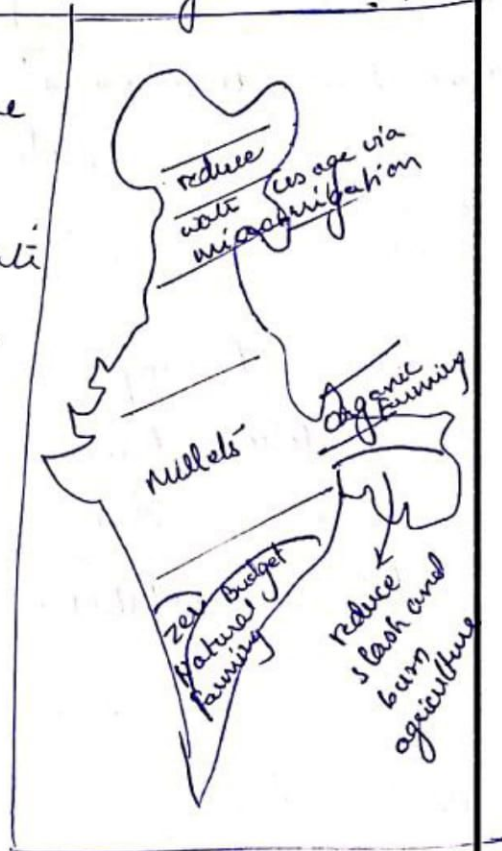 reduce
water usage via
microirrigation
organic
farming
Millets
Zero Budget
Natural
farming
reduce
slash and
burn
agriculture